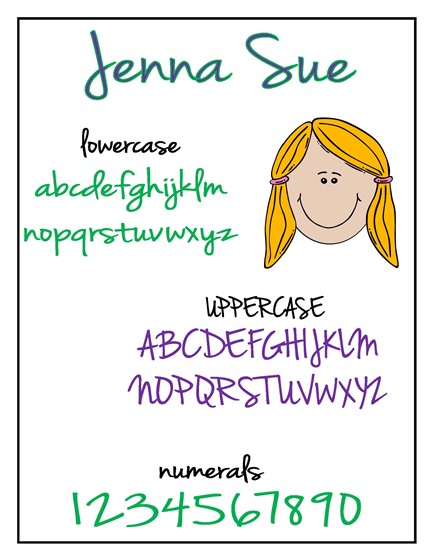 Jenna Sue
lowercase
abcdefghijklm
nopqrstuvwxyz
UPPERCASE
ABCDEFGHIJKLM
NOPQRSTUVWXYZ
numerals
1234567890